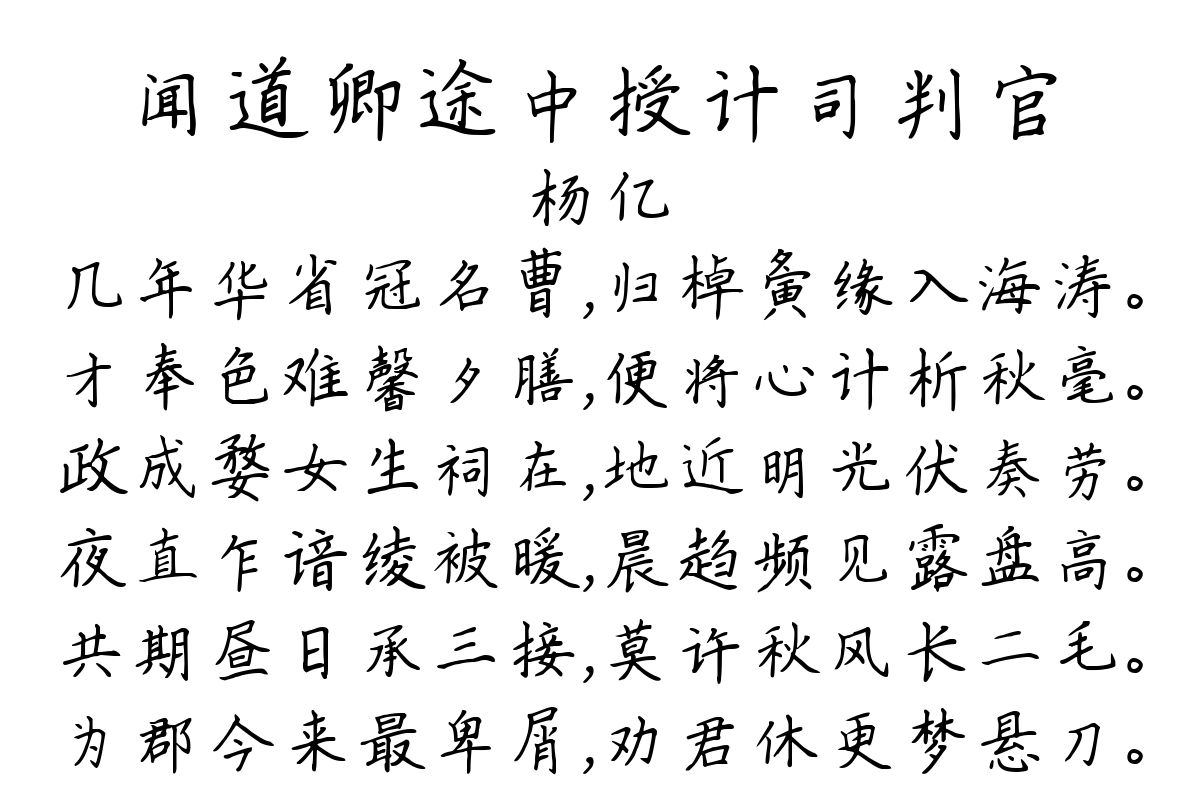 闻道卿途中授计司判官
杨亿
几年华省冠名曹,归棹夤缘入海涛。
才奉色难馨夕膳,便将心计析秋毫。
政成婺女生祠在,地近明光伏奏劳。
夜直乍谙绫被暖,晨趋频见露盘高。
共期昼日承三接,莫许秋风长二毛。
为郡今来最卑屑,劝君休更梦悬刀。